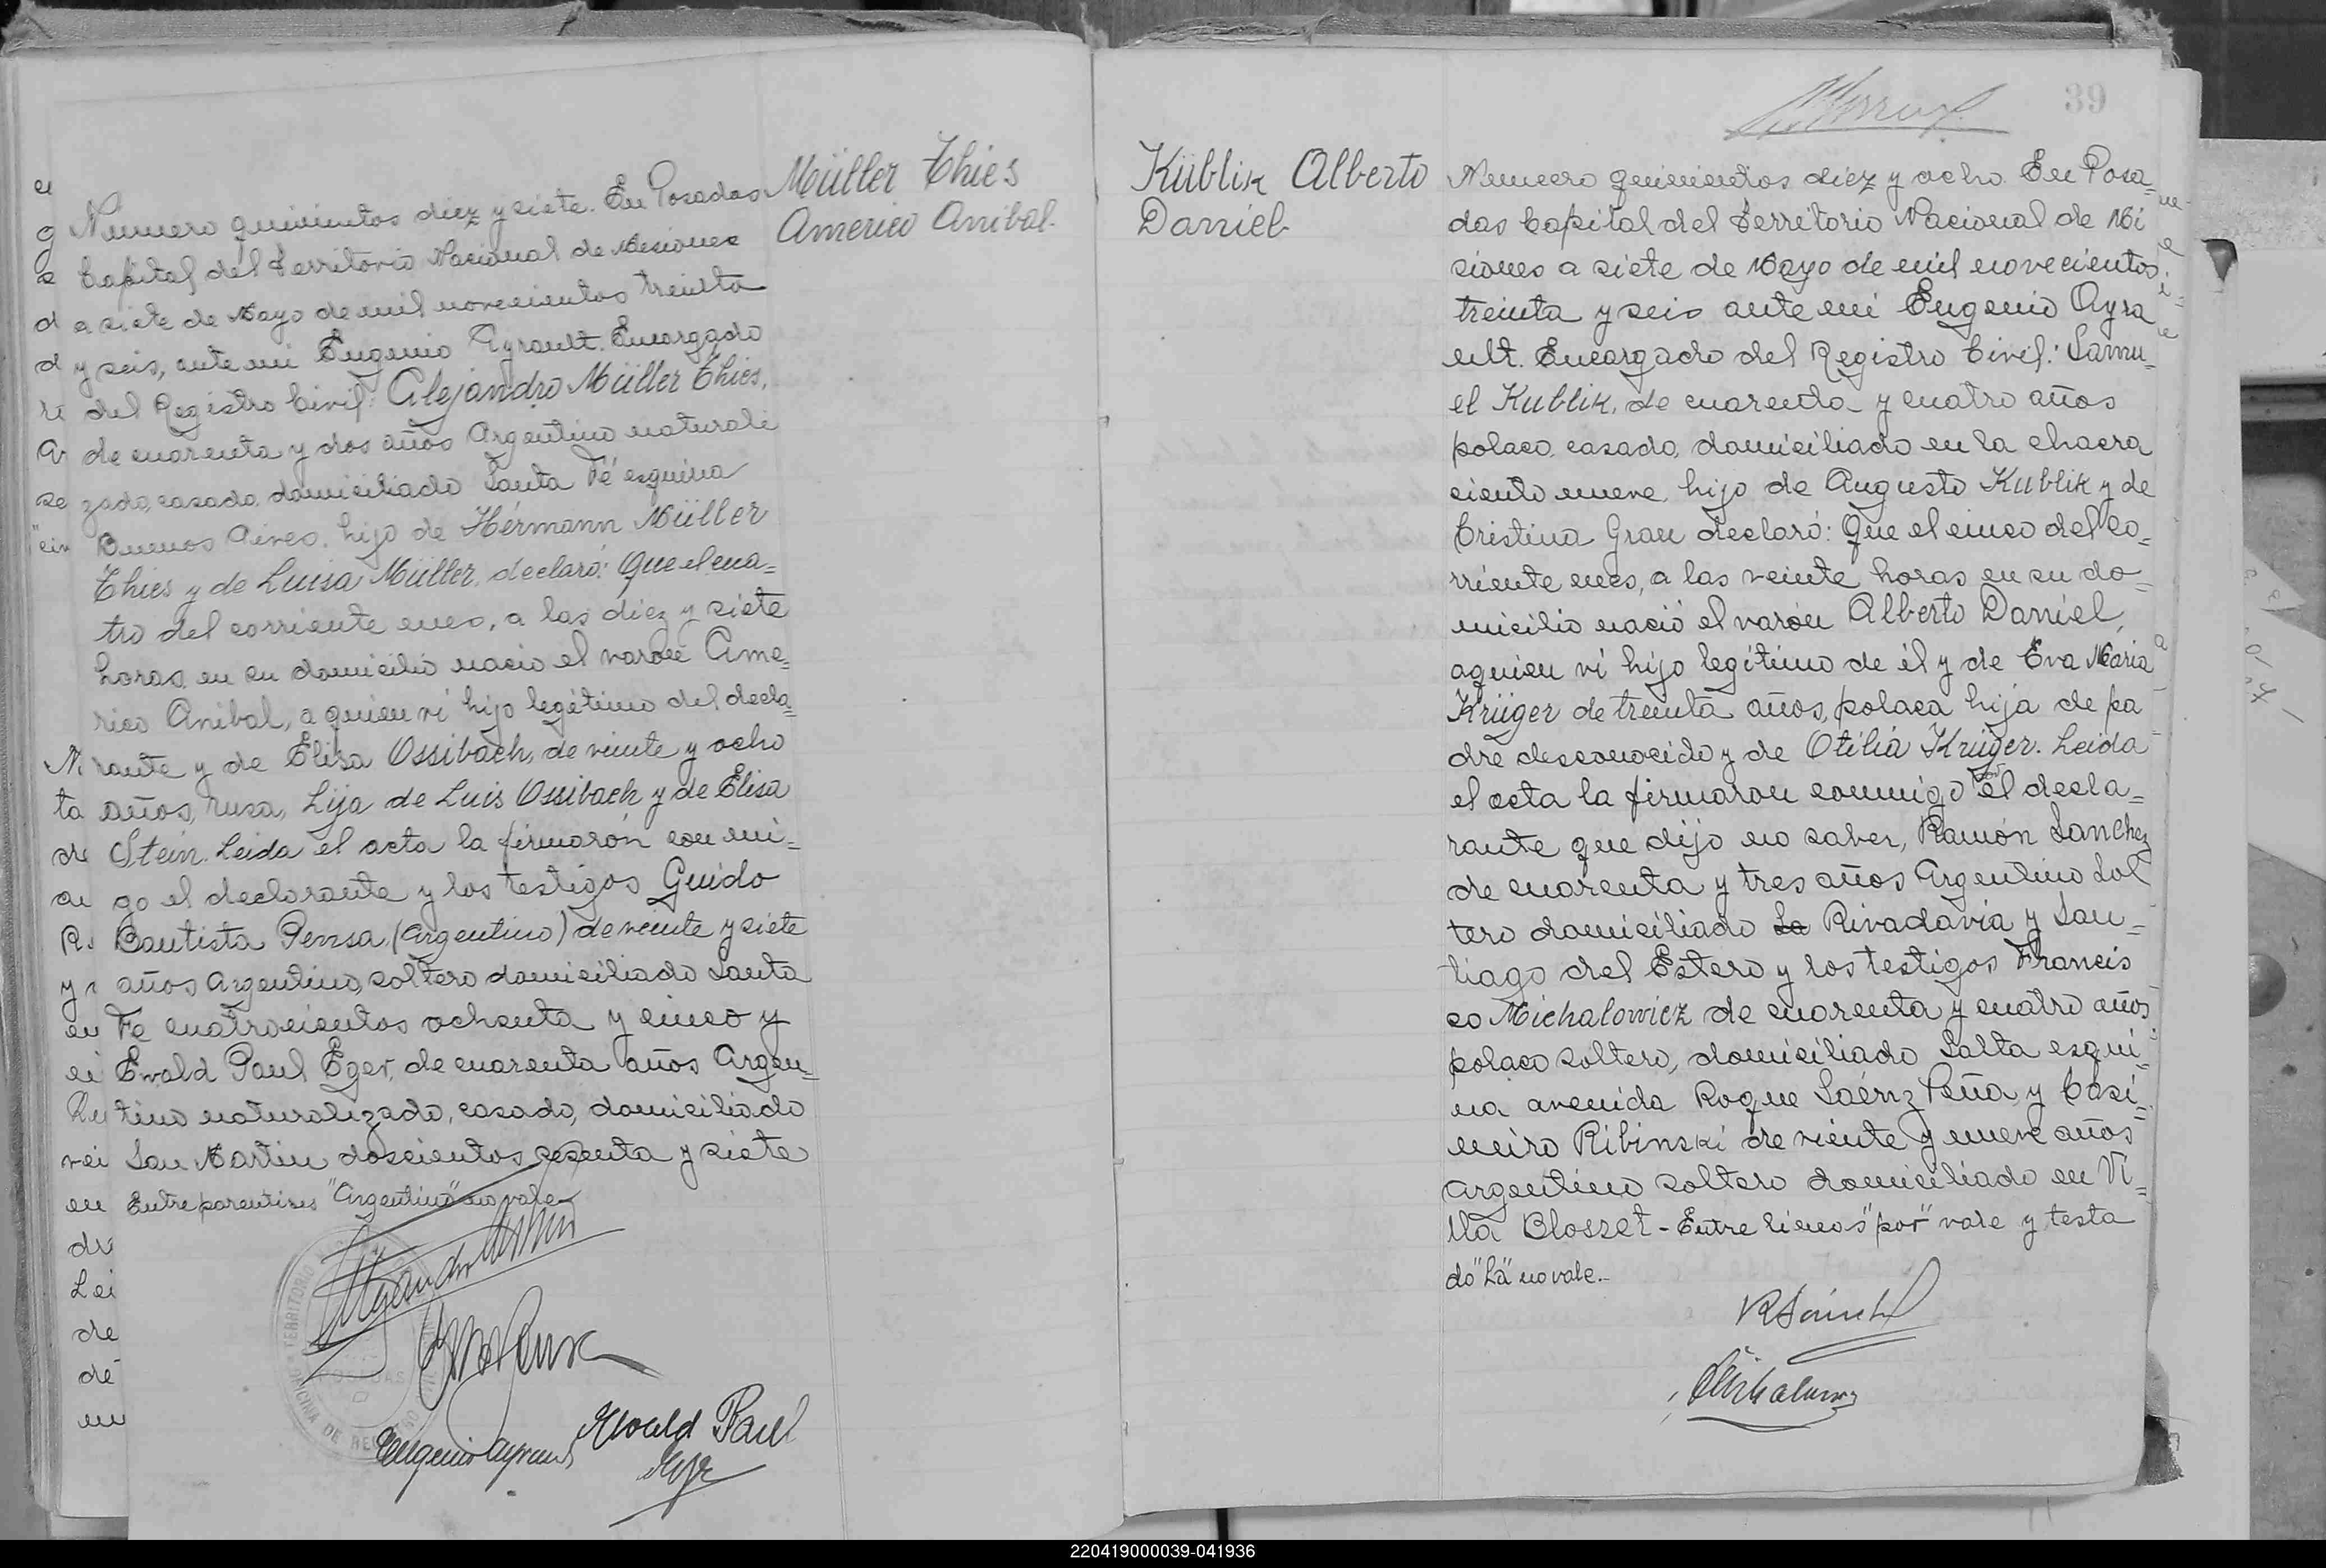 Müller Thies
Americo Anibal.
Numero quinientos diez y siete. En Posadas
Capital del Territorio Nacional de Misiones
a siete de Mayo de mil novecientos treinta
y seis, ante mi Eugenio Ayrault. Encargado
del Registro Civil: Alejandro Müller Thies,
de cuarenta y dos años Argentino naturali
zado, casado, domiciliado Santa Fé esquina
Buenos Aires. hijo de Hérmann Müller
Thies y de Luisa Müller, declaró: Que el cua=
tro del corriente mes, a las diez y siete
horas, en su domicilio nacio el varón Ame=
rico Anibal, a quien ví hijo legítimo del decla=
rante y de Elisa Ossibach, de veinte y ocho
años, rusa, hija de Luis Ossibach y de Elisa
Stein. Leida el acta la firmarón con mi=
go el declarante y los testigos Guido
Bautista Pensa, (Argentino) de veinte y siete
años Argentino, soltero domiciliado Santa
Fé cuatrocientos ochenta y cinco y
Ewald Paul Eger, de cuarenta años Argen=
tino naturalizado, casado, domiciliado
San Martin doscientos sesenta y siete
Entre parentisis "Argentino" no vale
Ewald Paul
Eger
Eugenio Ayrault
39
Küblik Alberto
Daniel
Numero quinientos diez y ocho. En Posa=
das Capital del Territorio Nacional de Mi
siones a siete de Mayo de mil novecientos
treinta y seis ante mi Eugenio Ayra
ult. Encargado del Registro Civil: Samu=
el Kublik, de cuarenta y cuatro años
polaco, casado, domiciliado en la chacra
ciento nueve, hijo de Augusto Kublik y de
Cristina Grau declaró: Que el cinco del co=
rriente mes, a las veinte horas en su do=
micilio nació el varón Alberto Daniel,
aquien ví hijo legítimo de él y de Eva Maria
Krüger de treinta años, polaca hija de pa
dre desconocido y de Otilia Krüger. Leida
el acta la firmaron conmigo por el decla=
rante que dijo no saber, Ramón Sanchez
de cuarenta y tres años Argentino Sol
tero domiciliado La Rivadavia y San=
tiago del Estero y los testigos Francis
co Michalowicz de cuarenta y cuatro años
polaco soltero, domiciliado Salta esqui=
na avenida Roque Saénz Peña, y Casi=
miro Ribinski de veinte y nueve años
Argentino soltero domiciliado en Vi=
lla Blosset - Entre lineas "por" vale y testa
do "La" no vale.-
220419000039-041936